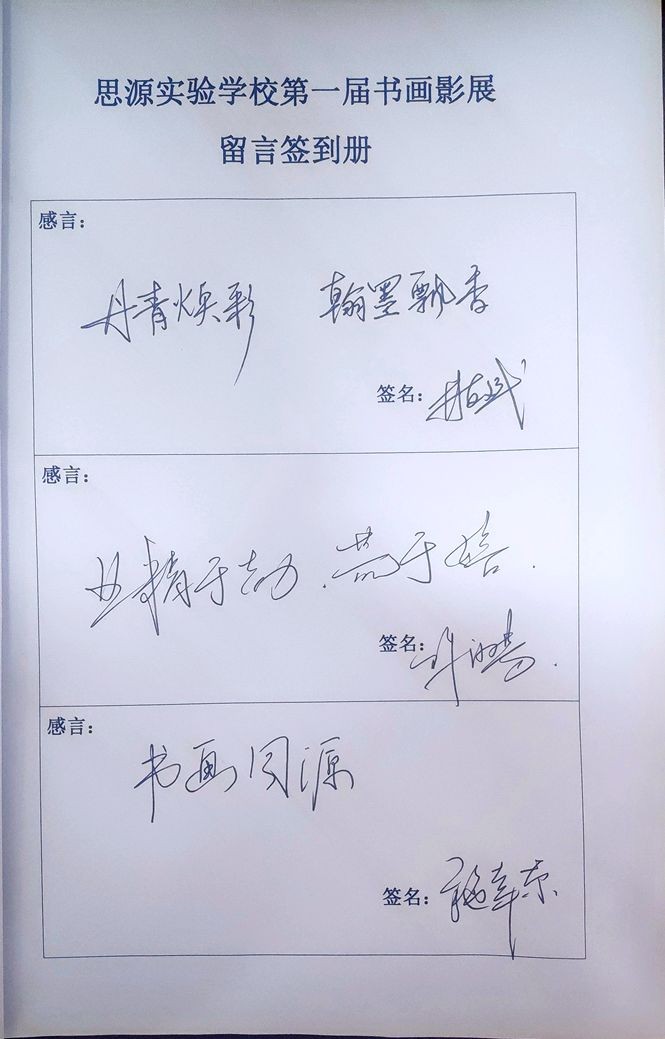 思源实验学校第一届书画影展
留言签到册
感言：
丹青焕彩 翰墨飘香
签名：
感言：
业精于勤.荒于嬉.
签名：
感言：
书画同源
签名：